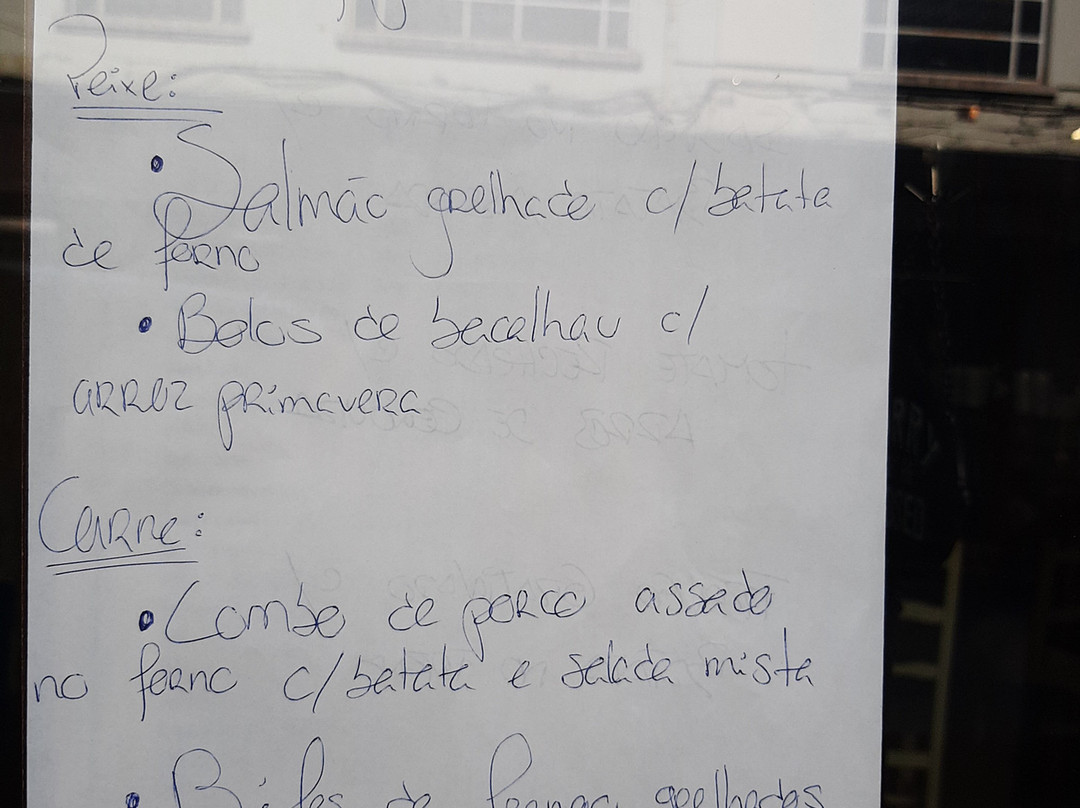 Peixe:
• Salmão grelhado c/ batata
de forno
• Bolos de bacalhau c/
arroz primavera
Carne:
• Lombo de porco assado
no forno c/ batata e salada mista
• Bifes de frango grelhados